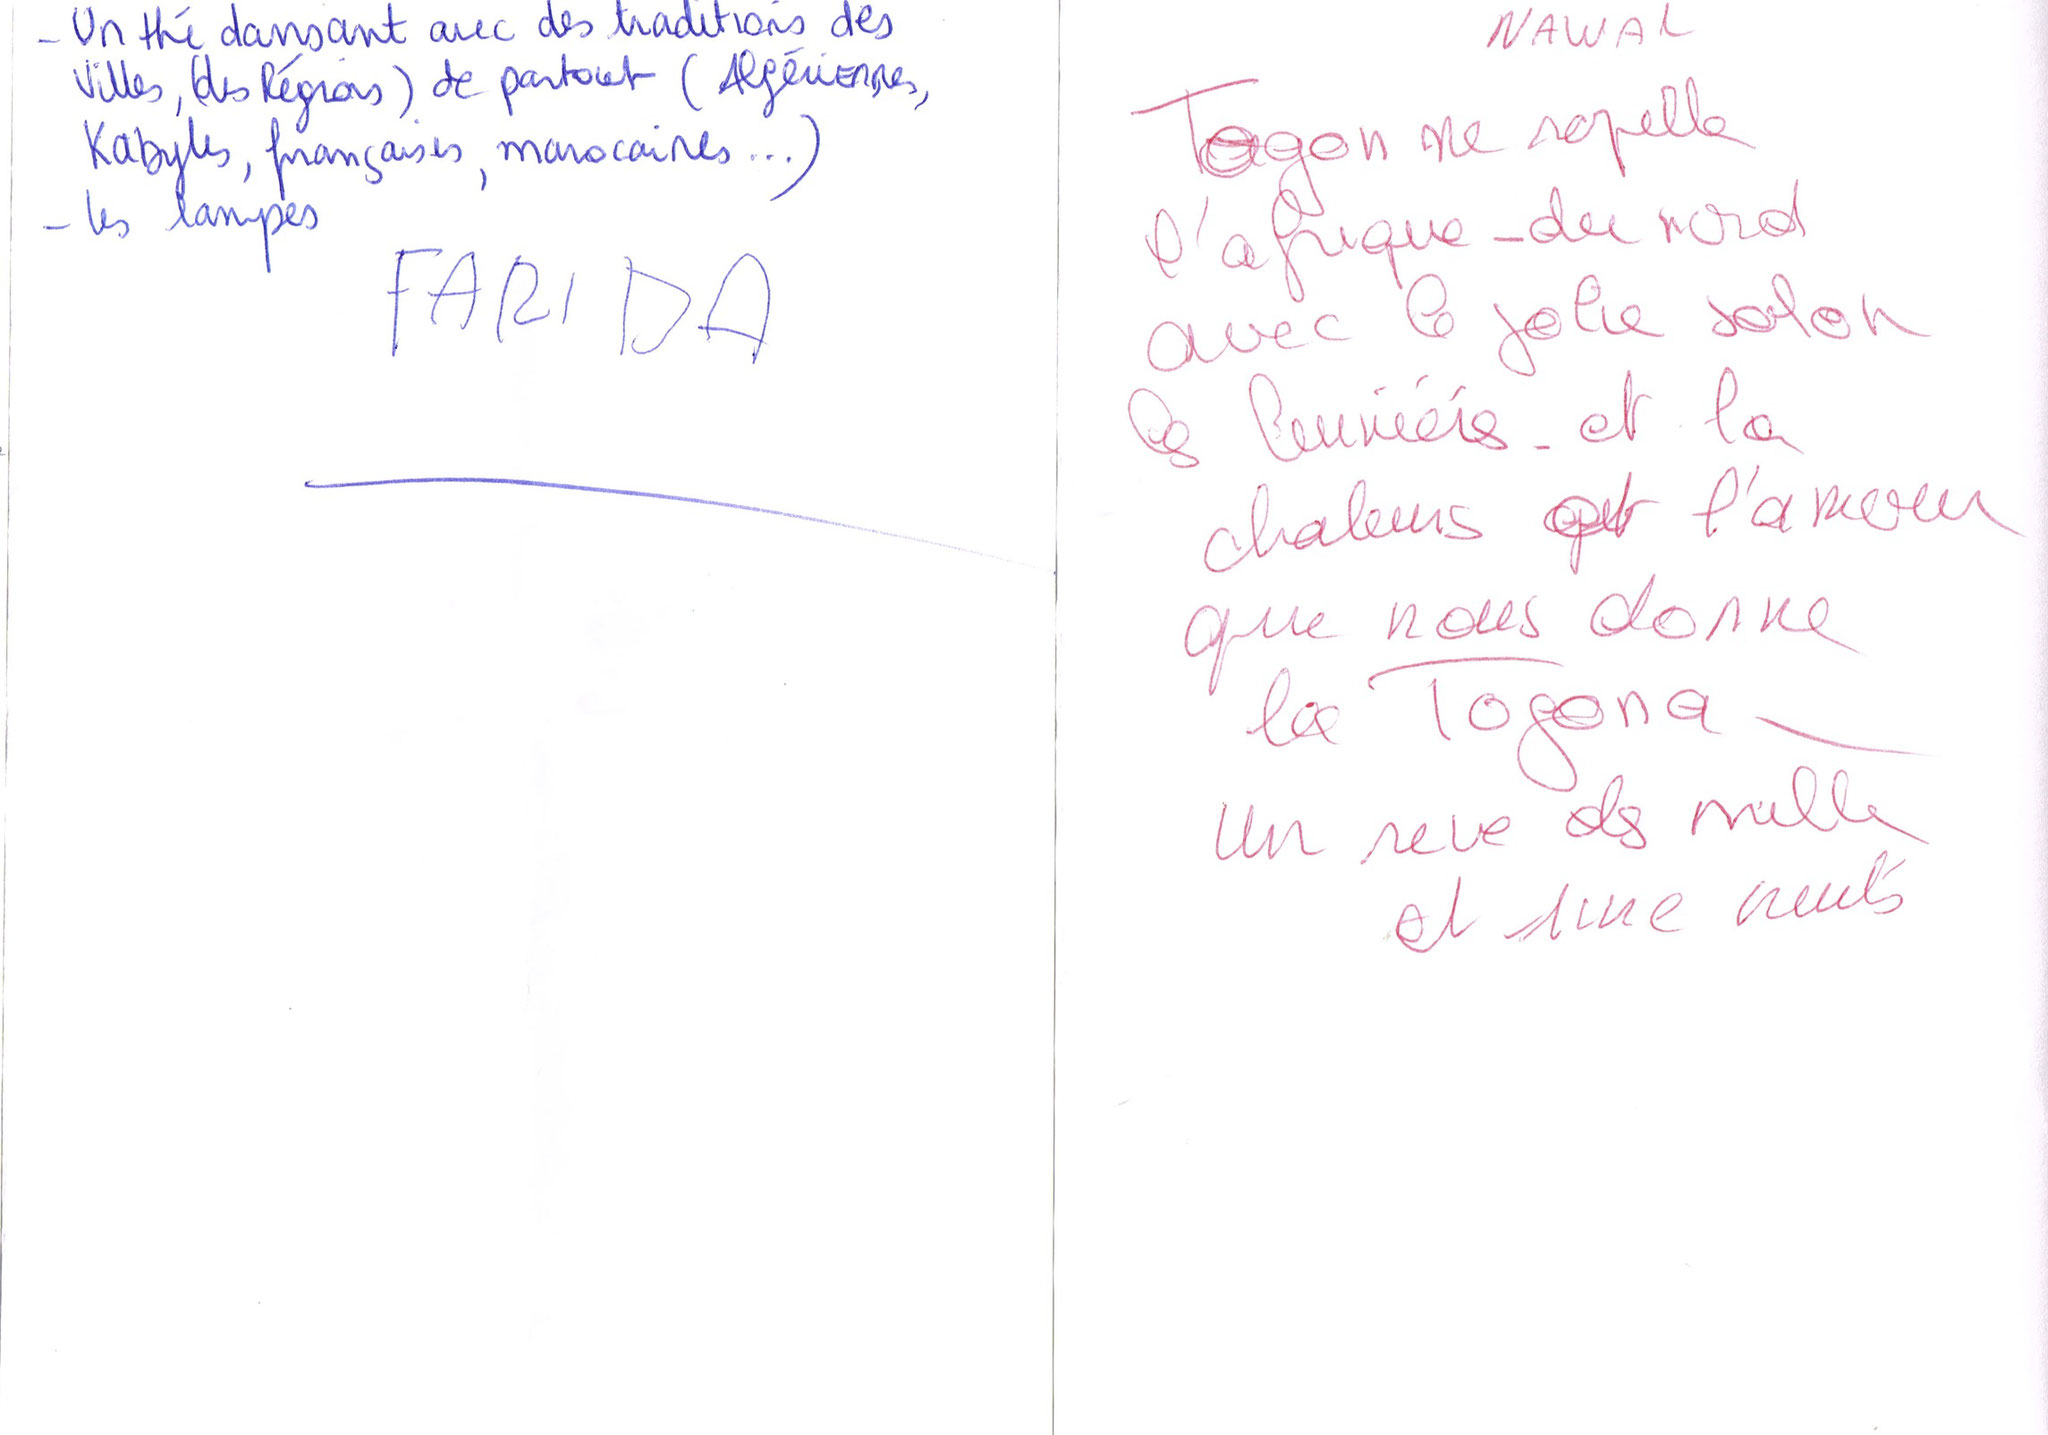 - Un thé dansant avec des traditions des
villes, (des Régions) de partout (Algériennes,
Kabyles, françaises, marocaines ...)
- les lampes
FARIDA
NAWAL
Togon me rapelle
l'afrique - du nord
avec le jolie salon
les lumiéres - et la
chaleurs et l'amour
que nous donne
la Togona
un reve des mille
et une nuits